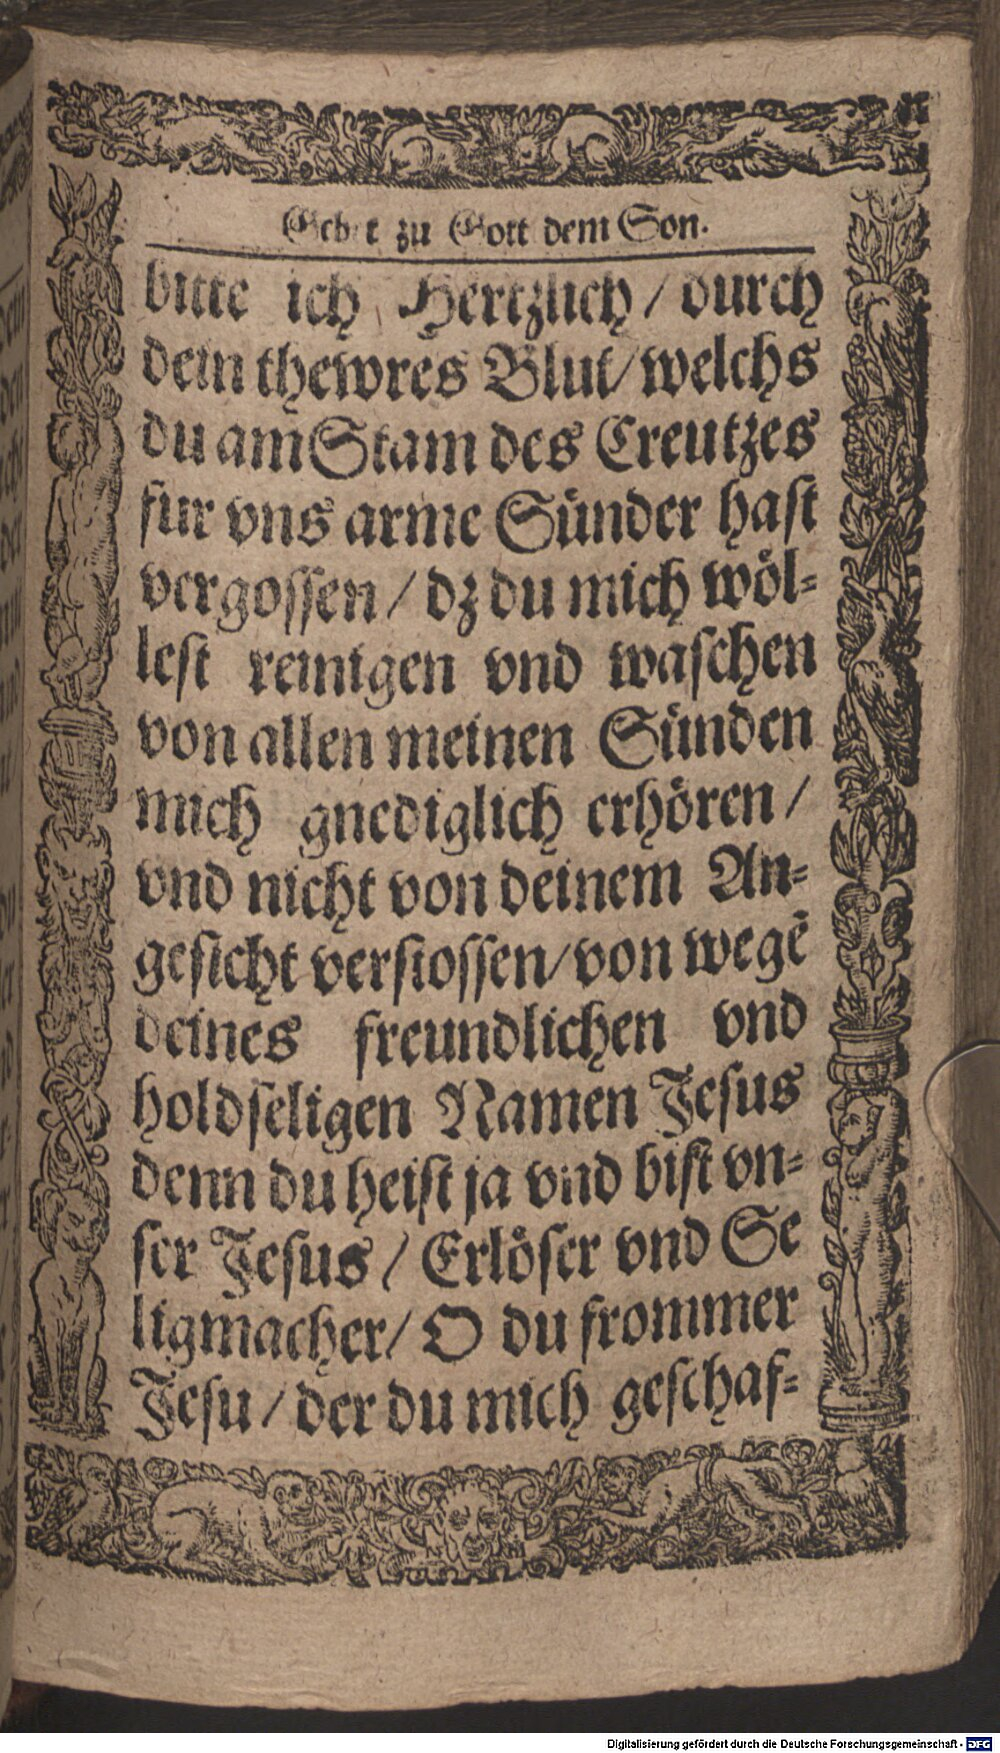 Gebet zu Gott dem Son.
bitte ich Hertzlich / durch
dein thewres Blut / welchs
du am Stam des Creutzes
fur vns arme Sünder hast
vergossen / dz du mich wöl-
lest reinigen vnd waschen
von allen meinen Sünden
mich gnediglich erhören /
vnd nicht von deinem An-
gesicht verstossen / von wegē
deines freundlichen vnd
holdseligen Namen Jesus
denn du heist ja vnd bist vn-
ser Jesus / Erlöser vnd Se
ligmacher / O du frommer
Jesu / der du mich geschaf-
Digitalisierung gefördert durch die Deutsche Forschungsgemeinschaft - DFG